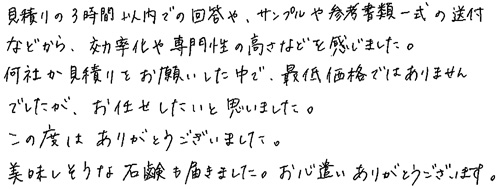 見積りの3時間以内での回答や、サンプルや参考書類一式の送付
などから、効率化や専門性の高さなどを感じました。
何社か見積りをお願いした中で、最低価格ではありません
でしたが、お任せしたいと思いました。
この度はありがとうございました。
美味しそうな石鹸も届きました。お心遣いありがとうございます。